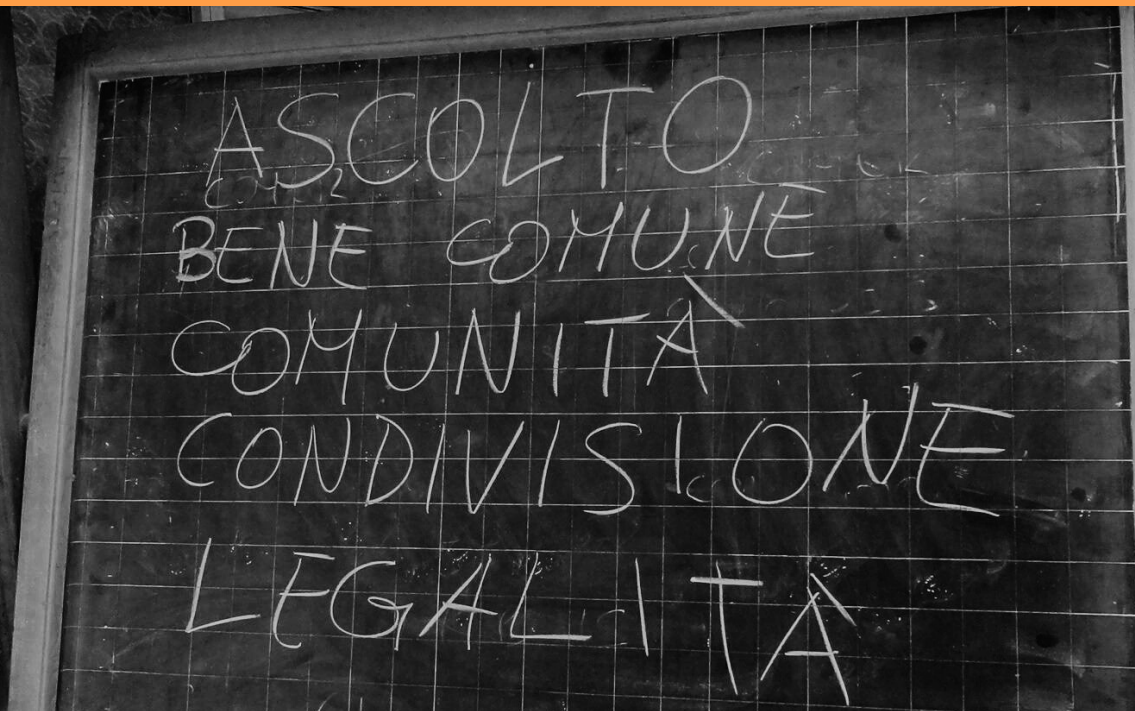 ASCOLTO
BENE COMUNE
COMUNITÀ
CONDIVISIONE
LEGALITÀ